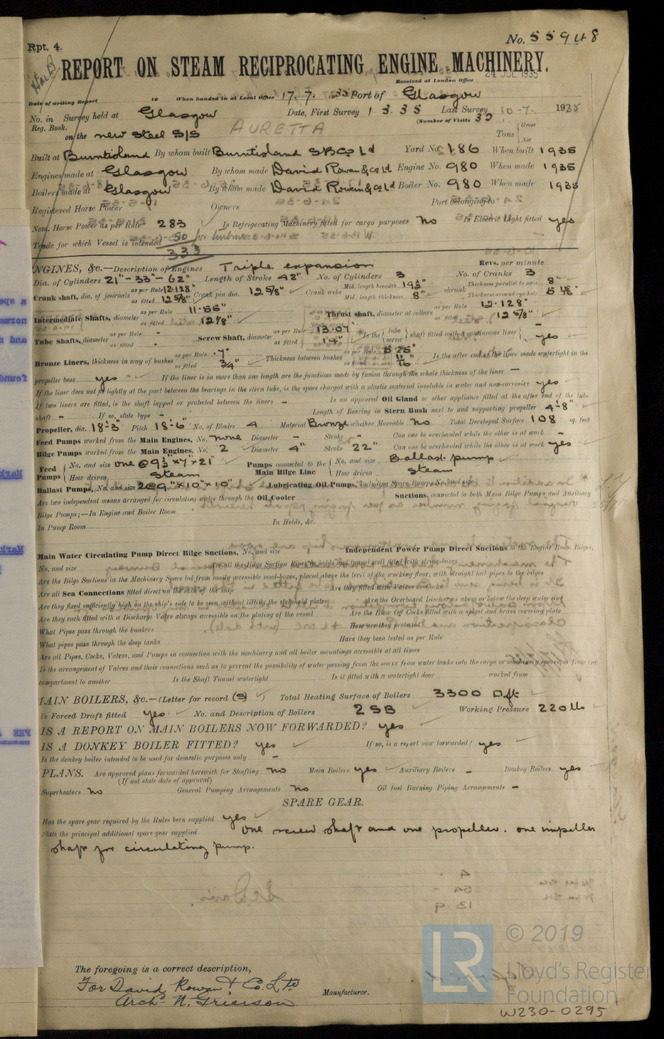 Rpt. 4.
No. 55948
REPORT ON STEAM RECIPROCATING ENGINE MACHINERY.
Received at London Office 24 JUL 1935
Date of writing Report 19 When handed in at Local Office 17.7. 35 Port of Glasgow
No. in Survey held at Glasgow Date, First Survey 1 3.35 Last Survey 10-7- 1935
Reg. Book. (Number of Visits 30
on the new Steel S/S AURETTA Tons Gross Net
Built at Burntisland By whom built Burntisland SBCo Ld Yard No. 186 When built 1935
Engines made at Glasgow By whom made David Rowan & Co Ld Engine No. 980 When made 1935
Boilers made at Glasgow By whom made David Rowan & Co Ld Boiler No. 980 When made 1935
Registered Horse Power Owners Port belonging to
Nom. Horse Power as per Rule 283 Is Refrigerating Machinery fitted for cargo purposes No Is Electric Light fitted yes
Trade for which Vessel is intended 50 for turbine
333
ENGINES, &c.—Description of Engines Triple expansion Revs. per minute
Dia. of Cylinders 21"-33"-62" Length of Stroke 42" No. of Cylinders 3 No. of Cranks 3
Crank shaft, dia. of journals as per Rule 12.128" as fitted 12 5/8" Crank pin dia. 12 5/8" Crank webs Mid. length breadth 19 3/4" Mid. length thickness 8" shrunk Thickness parallel to axis 8" Thickness around eye-hole
Intermediate Shafts, diameter as per Rule 11.55" as fitted 12 1/8" Thrust shaft, diameter at collars as per Rule 12.128" as fitted 12 5/8"
Tube Shafts, diameter as per Rule as fitted Screw Shaft, diameter as per Rule 13.07 as fitted 14" Is the tube screw shaft fitted with a continuous liner yes
Bronze Liners, thickness in way of bushes as per Rule .7" as fitted 3/4" Thickness between bushes as per Rule as fitted Is the after end of the liner made watertight in the
propeller boss yes If the liner is in more than one length are the junctions made by fusion through the whole thickness of the liner –
If the liner does not fit tightly at the part between the bearings in the stern tube, is the space charged with a plastic material insoluble in water and non-corrosive yes
If two liners are fitted, is the shaft lapped or protected between the liners – Is an approved Oil Gland or other appliance fitted at the after end of the tube
shaft – If so, state type – Length of Bearing in Stern Bush next to and supporting propeller 4'-8"
Propeller, dia. 18'-3" Pitch 18'-6" No. of Blades 4 Material Bronze whether Moveable No Total Developed Surface 108 sq. feet
Feed Pumps worked from the Main Engines, No. none Diameter – Stroke – Can one be overhauled while the other is at work –
Bilge Pumps worked from the Main Engines, No. 2 Diameter 4" Stroke 22" Can one be overhauled while the other is at work yes
Feed Pumps No. and size one 9 1/2 x 7 x 21" How driven Steam Pumps connected to the Main Bilge Line No. and size Ballast pump How driven Steam
Ballast Pumps, No. and size 2 @ 9" x 10" x 10" Lubricating Oil Pumps,
Are two independent means arranged for circulating water through the Oil Cooler Suctions, connected to both Main Bilge Pumps and Auxiliary
Bilge Pumps;—In Engine and Boiler Room
In Pump Room In Holds, &c.
Main Water Circulating Pump Direct Bilge Suctions, No. and size Independent Power Pump Direct Suctions to the Engine Room Bilges,
No. and size
Are the Bilge Suctions in the Machinery Space led from easily accessible mud-boxes, placed above the level of the working floor, with straight tail pipes to the bilges
Are all Sea Connections fitted direct
Are they fixed sufficiently high on the ship's side to be seen without lifting the stokehold plates Are the Overboard Discharges above or below the deep water line
Are they each fitted with a Discharge Valve always accessible on the plating of the vessel Are the Blow Off Cocks fitted with a spigot and brass covering plate
What Pipes pass through the bunkers How are they protected
What pipes pass through the deep tanks Have they been tested as per Rule
Are all Pipes, Cocks, Valves, and Pumps in connection with the machinery and all boiler mountings accessible at all times
Is the arrangement of Valves and their connections such as to prevent the possibility of water passing from the sea or from water tanks into the cargo or
compartment to another Is the Shaft Tunnel watertight Is it fitted with a watertight door worked from
MAIN BOILERS, &c.—(Letter for record (S) Total Heating Surface of Boilers 3300 □ft
Is Forced Draft fitted yes No. and Description of Boilers 2 SB Working Pressure 220 lbs
IS A REPORT ON MAIN BOILERS NOW FORWARDED? yes
IS A DONKEY BOILER FITTED? yes If so, is a report now forwarded? yes
Is the donkey boiler intended to be used for domestic purposes only –
PLANS. Are approved plans forwarded herewith for Shafting No Main Boilers yes Auxiliary Boilers – Donkey Boilers yes
(If not state date of approval)
Superheaters No General Pumping Arrangements No Oil fuel Burning Piping Arrangements –
SPARE GEAR.
Has the spare gear required by the Rules been supplied yes
State the principal additional spare gear supplied One screw shaft and one propeller. One impeller
shaft for circulating pump.
The foregoing is a correct description,
For David Rowan & Co. Ltd
Archd N. Grierson Manufacturer.
© 2019
LR
Lloyd's Register
Foundation
W230-0295